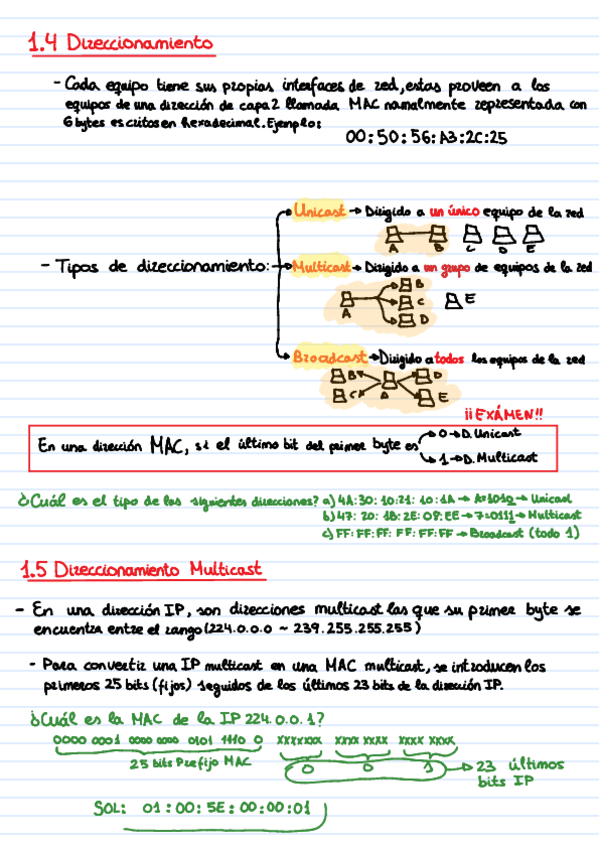 1.4 Direccionamiento
- Cada equipo tiene sus propias interfaces de red, estas proveen a los
equipos de una dirección de capa 2 llamada MAC normalmente representada con
6 bytes escritos en hexadecimal. Ejemplo:
00:50:56:A3:2C:25
Unicast → Dirigido a un único equipo de la red
A B C D E
- Tipos de direccionamiento: → Multicast → Dirigido a un grupo de equipos de la red
B
A C E
D
Broadcast → Dirigido a todos los equipos de la red
B D
C A E
¡¡EXÁMEN!!
En una dirección MAC, si el último bit del primer byte es
0 → D. Unicast
1 → D. Multicast
¿Cuál es el tipo de las siguientes direcciones? a) 4A:30:10:21:10:1A → A=1010 → Unicast
b) 47:20:1B:2E:08:EE → 7=0111 → Multicast
c) FF:FF:FF:FF:FF:FF → Broadcast (todo 1)
1.5 Direccionamiento Multicast
- En una dirección IP, son direcciones multicast las que su primer byte se
encuentra entre el rango (224.0.0.0 ~ 239.255.255.255)
- Para convertir una IP multicast en una MAC multicast, se introducen los
primeros 25 bits (fijos) seguidos de los últimos 23 bits de la dirección IP.
¿Cuál es la MAC de la IP 224.0.0.1?
0000 0001 0000 0000 0101 1110 0 xxxxxxx xxxx xxxx xxxx xxxx
25 bits Prefijo MAC
0 0 1 → 23 últimos
bits IP
SOL: 01:00:5E:00:00:01